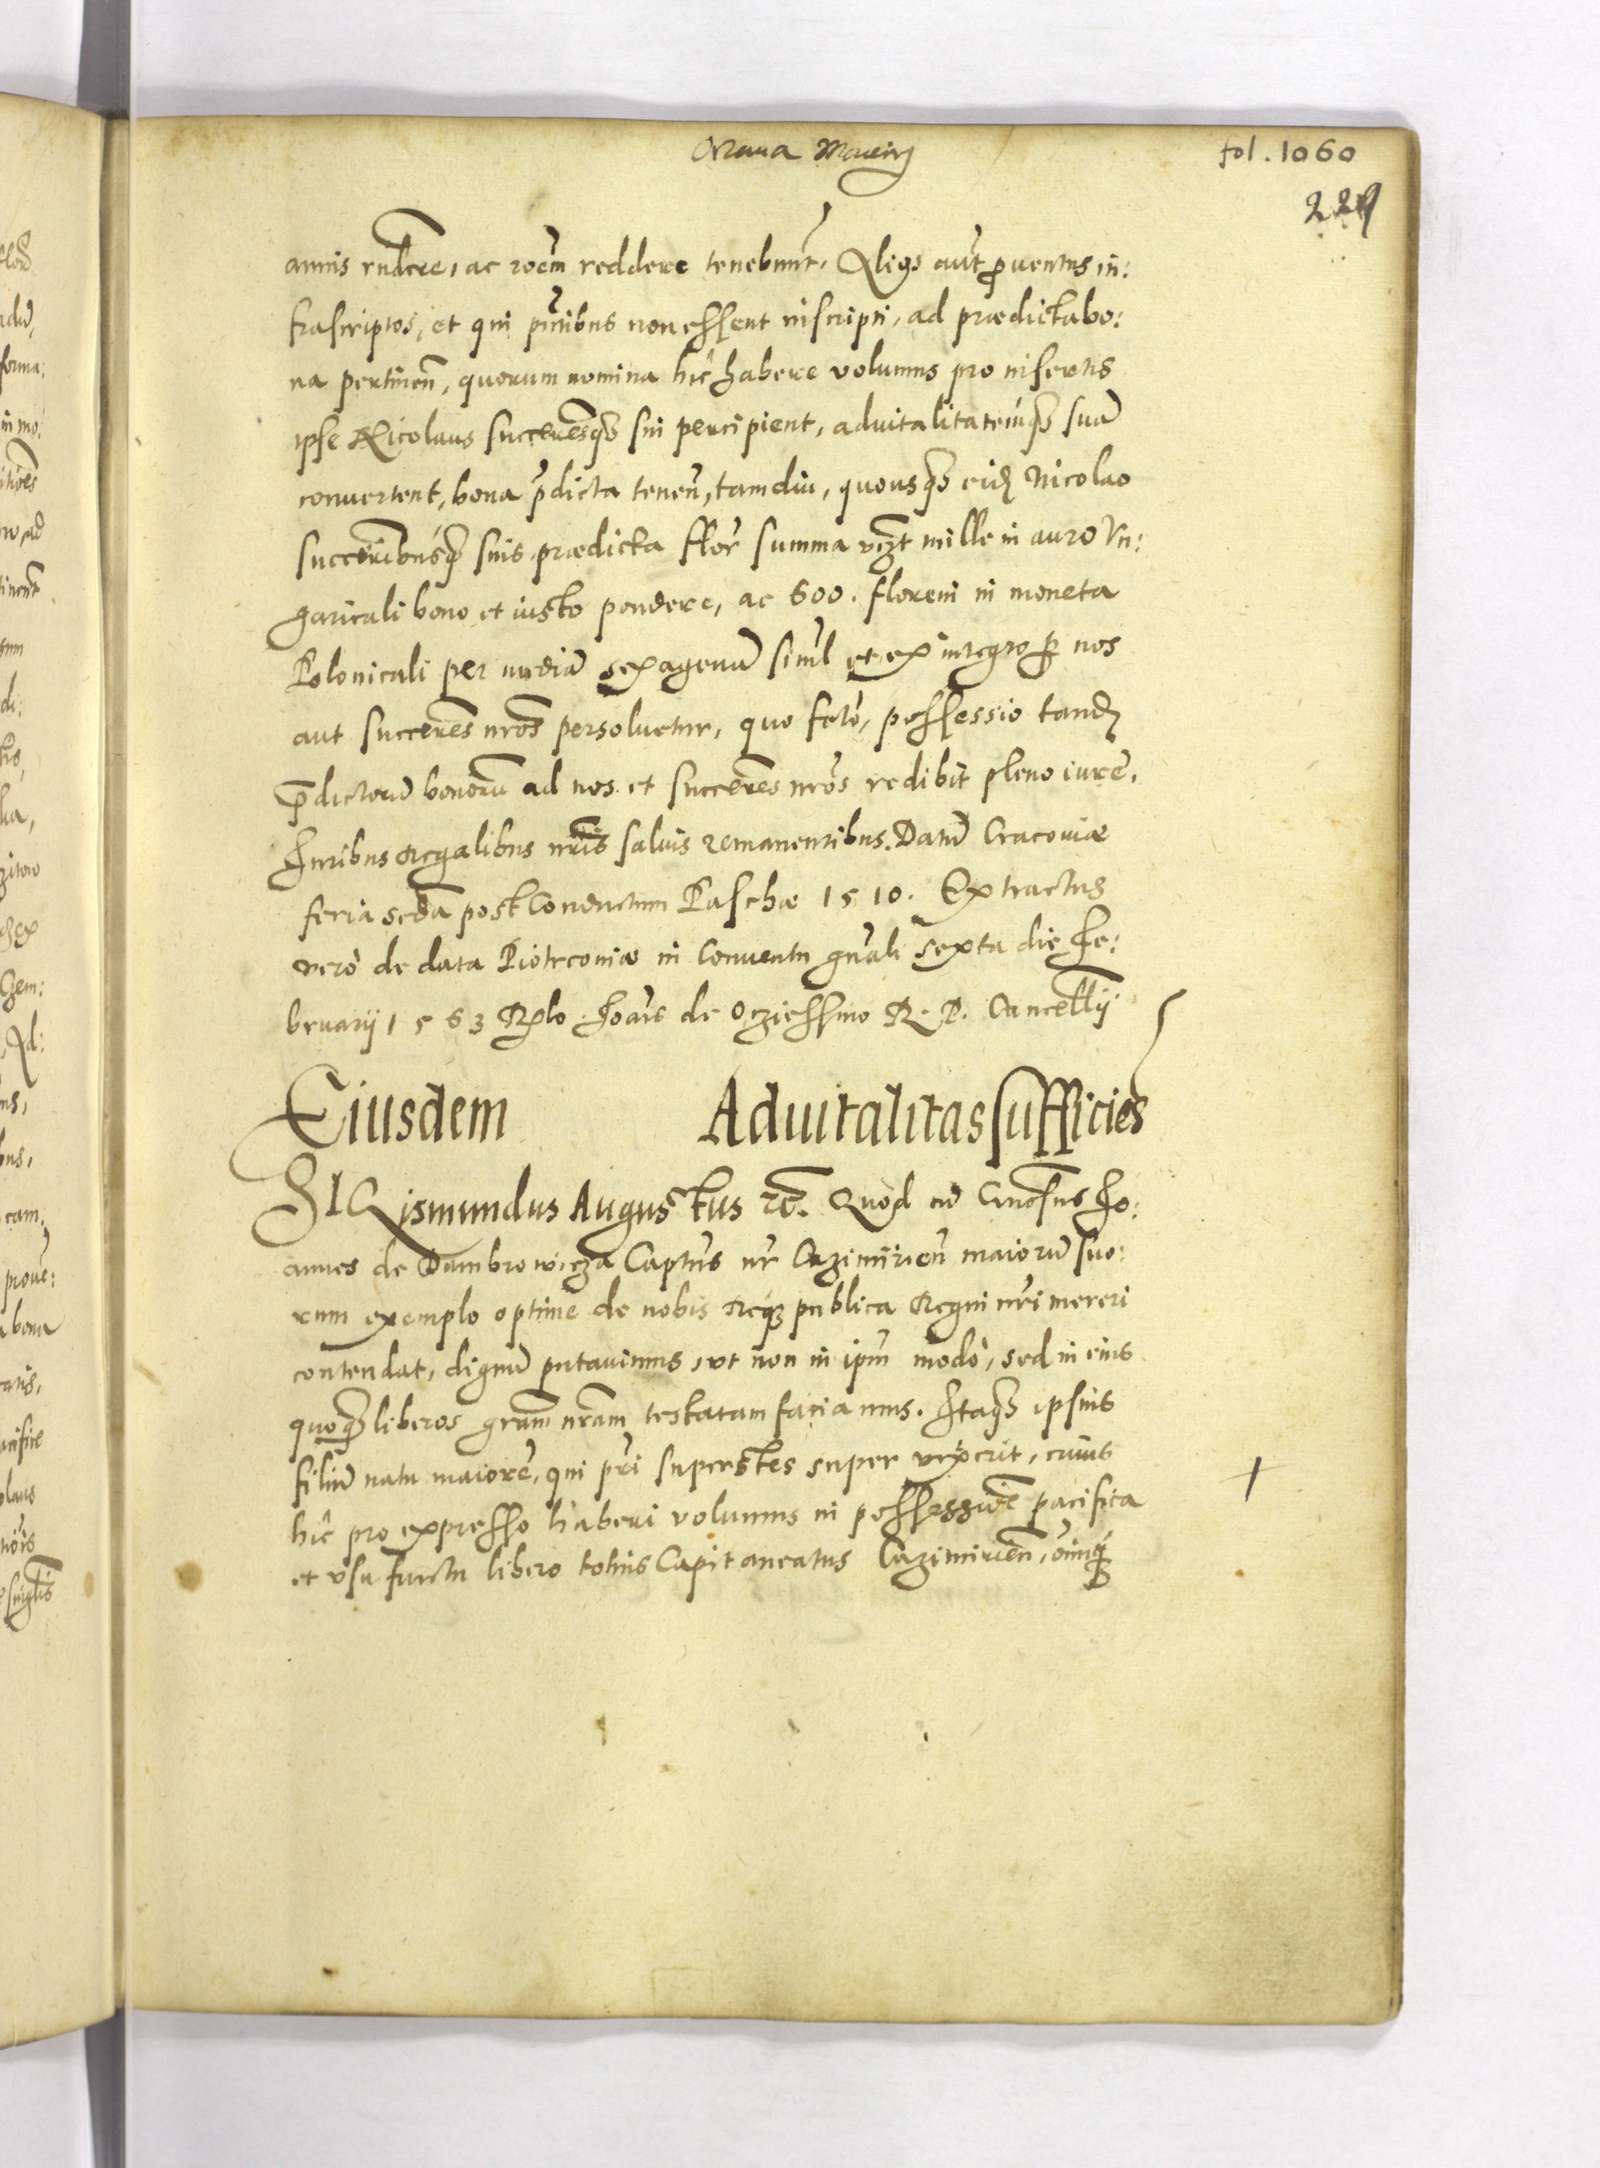 fol. 1060
229
annis rndere, ac roem reddere tenebunt, Alios aut proventus in:
frascriptos, et qui pntibus non essent inscripti, ad prædicta bo:
na pertinen, quorum nomina hic habere volumus pro insertis
ipse Nicolaus succeresq sui percipient, advitalitatemq suam
convertent, bona pdicta tenen, tam diu, quousq eid Nicolao
succeribusq suis prædicta flor summa vizt mille in auro Vn:
garicali bono et iusto pondere, ac 600. floreni in moneta
Polonicali per mediam sexagenam simul et ex integro p nos
aut succeres nros persolvetur, quo fcto, possessio tand
pdictorum bonorum ad nos et succeres nros redibit pleno iure,
Iuribus Regalibus nris salvis remanentibus. Datum Cracoviæ
feria scda post Conductum Paschæ 1510. Extractus
vero de data Piotrcoviæ in Conventu gnali sexta die Fe:
bruarij 1563 Rplo Ioais de Ocziessino R. P. Cancellij
Eiusdem Advitalitas sufficies
SIGismundus Augustus rc. Quod cum Gnosus Io:
annes de Dambrowicza Captus nr Cazimirien maiorum suo:
rum exemplo optime de nobis Req publica Regni nri mereri
contendat, dignum putavimus, vt non in ipm modo, sed in eius
quoq liberos gram nram testatam faciamus. Itaq ipsius
filium natu maiorem, qui pri superstes super vixerit, cuius
hic pro expresso haberi volumus in possessione pacifica
et vsu fructu libero totius Capitaneatus Cazimirien, oimq